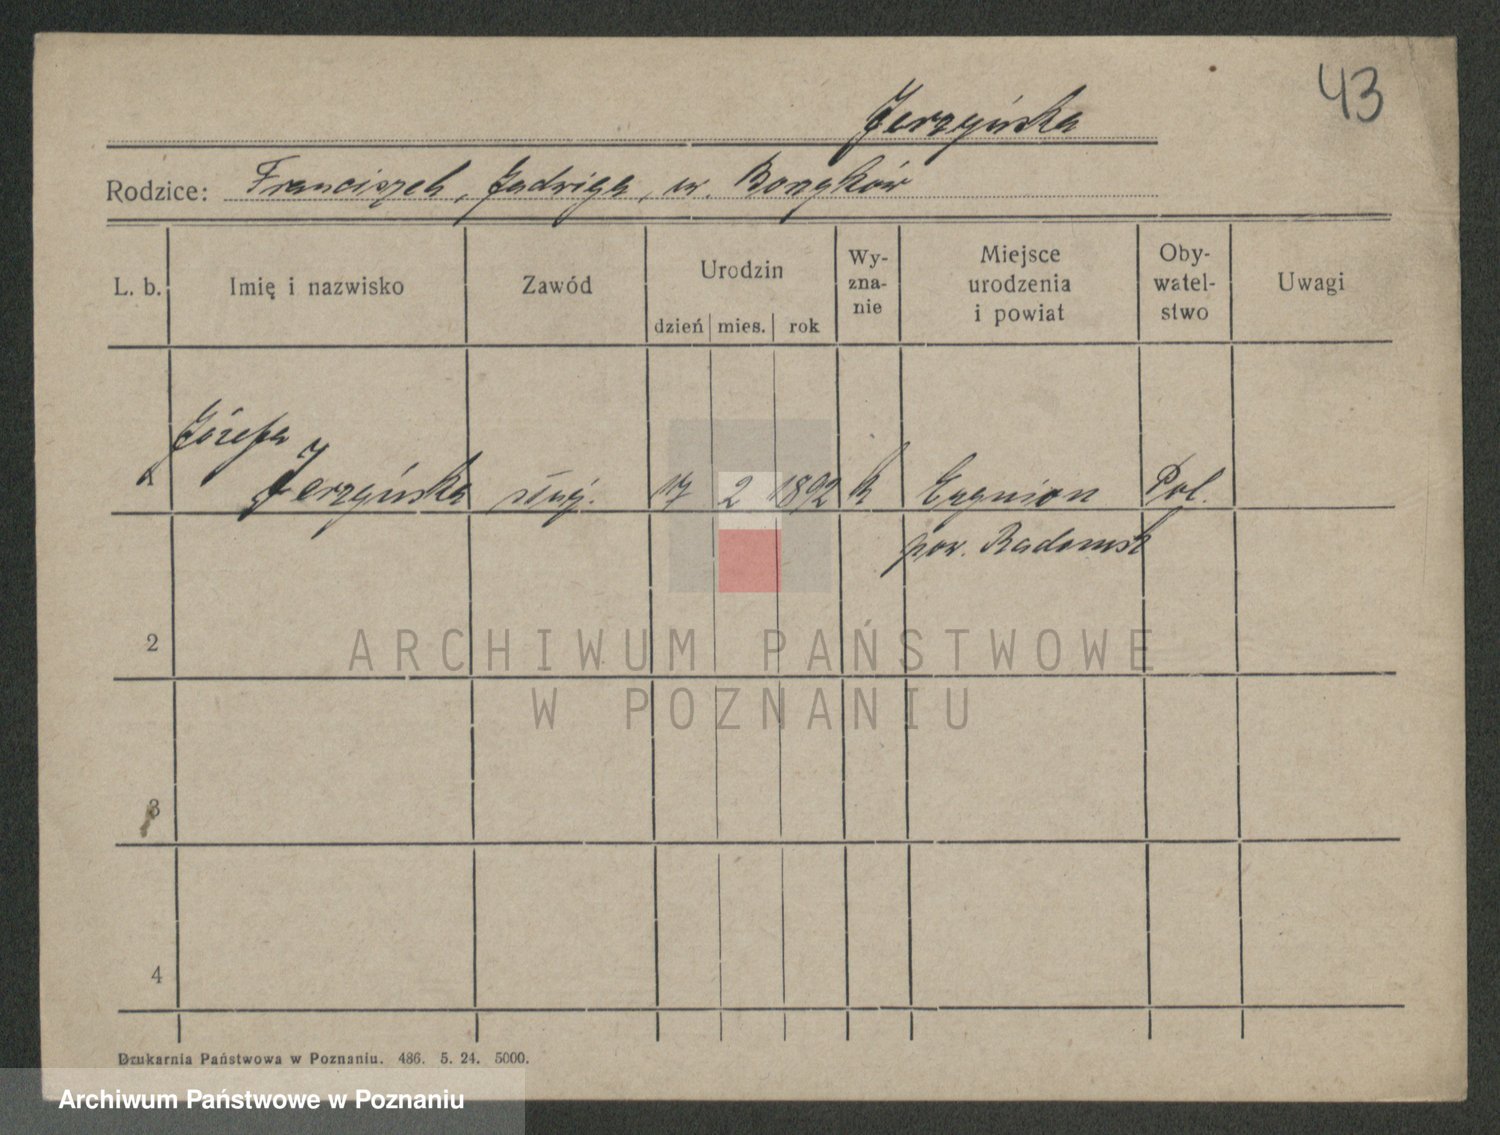 43
Jerzyńska
Rodzice: Franciszek, Jadwiga, w.
L. b. Imię i nazwisko Zawód Urodzin dzień mies. rok Wy-zna-nie Miejsce urodzenia i powiat Oby-watel-stwo Uwagi
Józefa
1 Jerzyńska służ. 17 2 1892 k Pol.
pow. Radomsk
2
ARCHIWUM PAŃSTWOWE
W POZNANIU
3
4
Drukarnia Państwowa w Poznaniu. 486. 5. 24. 5000.
Archiwum Państwowe w Poznaniu